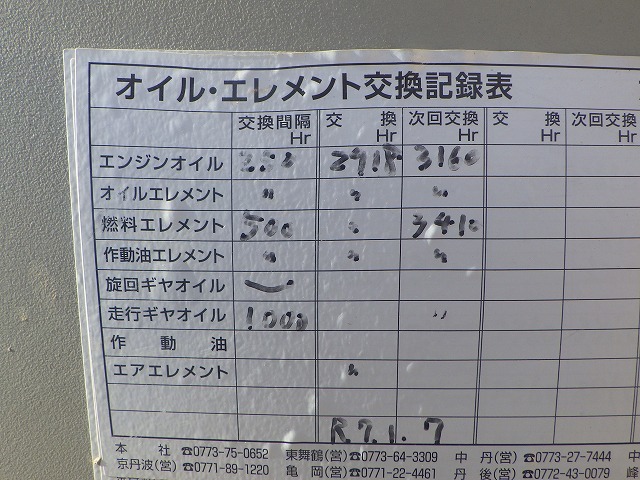 オイル・エレメント交換記録表
交換間隔 Hr 交換 Hr 次回交換 Hr 交換 Hr 次回交換 Hr
エンジンオイル 250 3160
オイルエレメント 〃 〃 〃
燃料エレメント 500 〃 3410
作動油エレメント 〃 〃 〃
旋回ギヤオイル
走行ギヤオイル 1000 〃
作動油
エアエレメント 〃
R.7.1.7
本社 ☎0773-75-0652 東舞鶴(営)☎0773-64-3309 中丹(営)☎0773-27-7444 中
京丹波(営)☎0771-89-1220 亀岡(営)☎0771-22-4461 丹後(営)☎0772-43-0079 峰